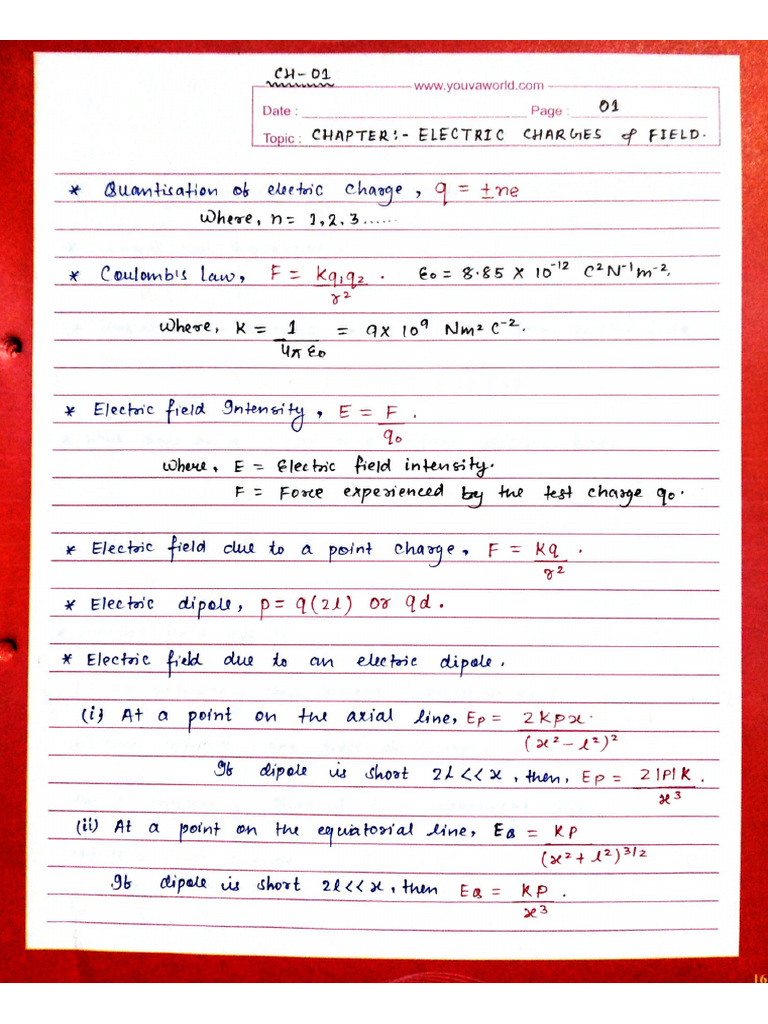 CH-01
www.youvaworld.com
Date : Page : 01
Topic : CHAPTER:- ELECTRIC CHARGES & FIELD.
* Quantisation of electric charge, q = ±ne
Where, n = 1,2,3......
* Coulomb's Law, F = Kq₁q₂/r². ε₀ = 8.85 × 10⁻¹² C²N⁻¹m⁻².
Where, K = 1/4πε₀ = 9×10⁹ Nm² C⁻².
* Electric field Intensity, E = F/q₀.
Where, E = Electric field intensity.
F = Force experienced by the test charge q₀.
* Electric field due to a point charge, F = Kq/r².
* Electric dipole, p = q(2l) or qd.
* Electric field due to an electric dipole.
(i) At a point on the axial line, Ep = 2Kpx/(x²-l²)².
If dipole is short 2l<<x, then, Ep = 2|P|K/x³.
(ii) At a point on the equatorial line, EQ = KP/(x²+l²)³/²
If dipole is short 2l<<x, then EQ = KP/x³.
16